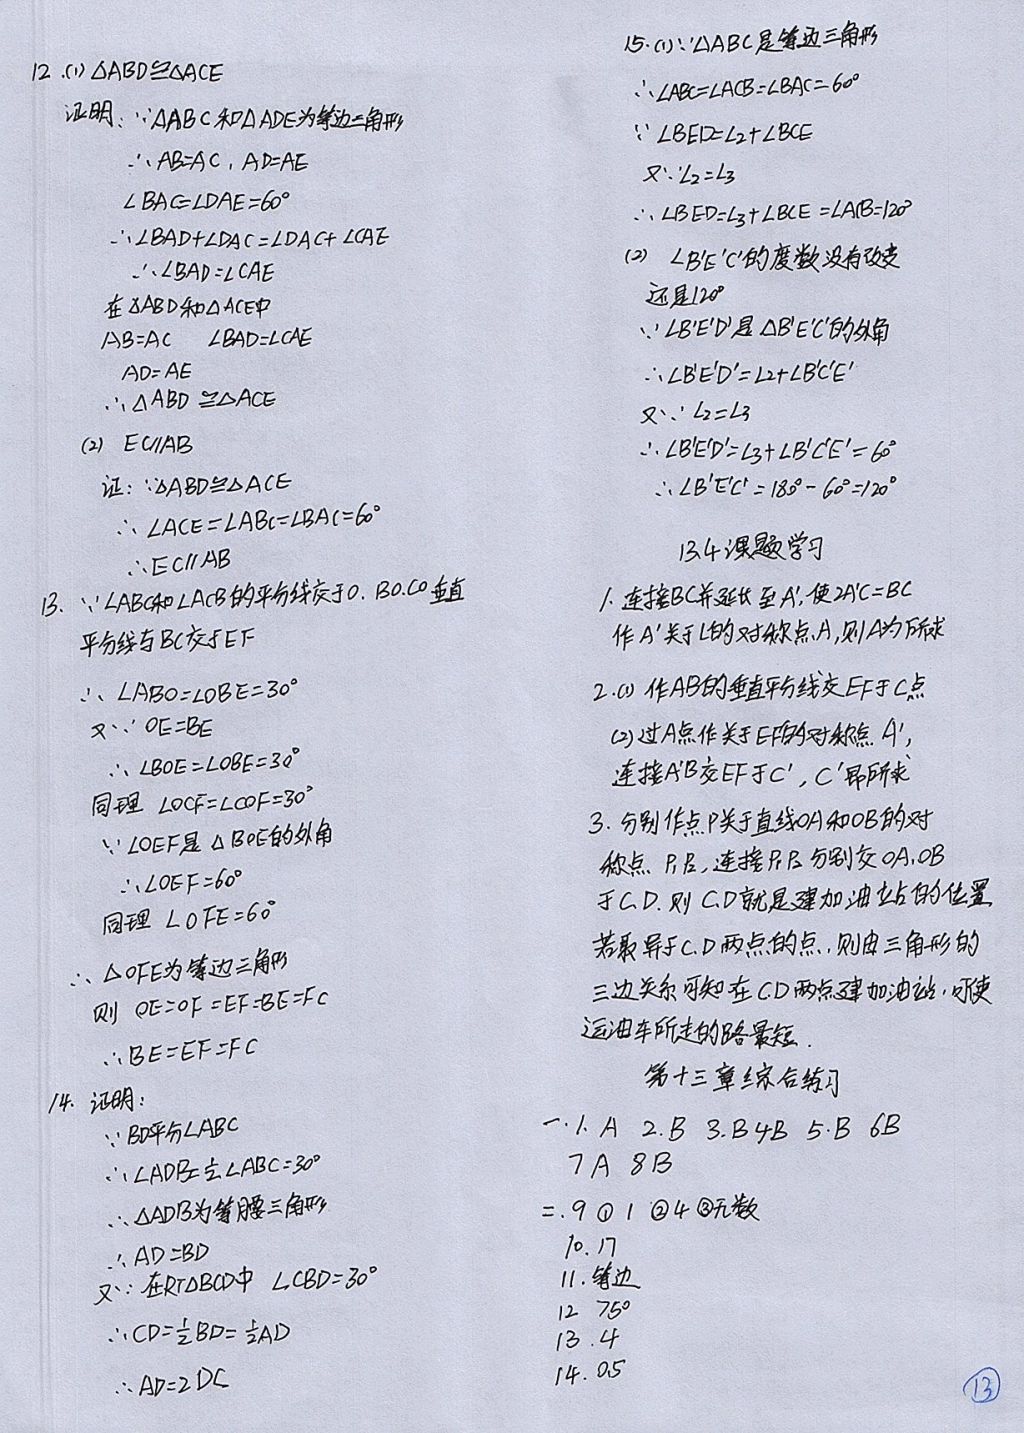 12.(1) △ABD≌△ACE
证明:∵△ABC和△ADE为等边三角形
∴AB=AC, AD=AE
∠BAC=∠DAE=60°
∴∠BAD+∠DAC=∠DAC+∠CAE
∴∠BAD=∠CAE
在△ABD和△ACE中
AB=AC ∠BAD=∠CAE
AD=AE
∴△ABD≌△ACE
(2) EC//AB
证:∵△ABD≌△ACE
∴∠ACE=∠ABC=∠BAC=60°
∴EC//AB
13. ∵∠ABC和∠ACB的平分线交于O. BO.CO垂直
平分线与BC交于EF
∴∠ABO=∠OBE=30°
又∵OE=BE
∴∠BOE=∠OBE=30°
同理 ∠OCF=∠COF=30°
∵∠OEF是△BOE的外角
∴∠OEF=60°
同理 ∠OFE=60°
∴△OFE为等边三角形
则 OE=OF=EF=BE=FC
∴BE=EF=FC
14. 证明:
∵BD平分∠ABC
∴∠ADB=½∠ABC=30°
∴△ADB为等腰三角形
∴AD=BD
又∵在RT△BCD中 ∠CBD=30°
∴CD=½BD=½AD
∴AD=2DC
15.(1)∵△ABC是等边三角形
∴∠ABC=∠ACB=∠BAC=60°
∵∠BED=∠2+∠BCE
又∵∠2=∠3
∴∠BED=∠3+∠BCE=∠ACB=120°
(2) ∠B'E'C'的度数没有改变
还是120°
∵∠B'E'D'是△B'E'C'的外角
∴∠B'E'D'=∠2+∠B'C'E'
又∵∠2=∠3
∴∠B'E'D'=∠3+∠B'C'E'=60°
∴∠B'E'C'=180°-60°=120°
13.4课题学习
1. 连接BC并延长至A',使2A'C=BC
作A'关于L的对称点A,则A为所求
2.(1)作AB的垂直平分线交EF于C点
(2)过A点作关于EF的对称点A',
连接A'B交EF于C',C'即所求
3. 分别作点P关于直线OA和OB的对
称点P₁P₂,连接P₁P₂分别交OA.OB
于C.D.则C.D就是建加油站的位置
若取异于C.D两点的点,则由三角形的
三边关系可知在C.D两点建加油站,可使
运油车所走的路最短.
第十三章综合练习
一.1.A 2.B 3.B 4B 5.B 6B
7A 8B
二.9 ①1 ②4 ③无数
10.17
11.等边
12 75°
13.4
14.0.5
13